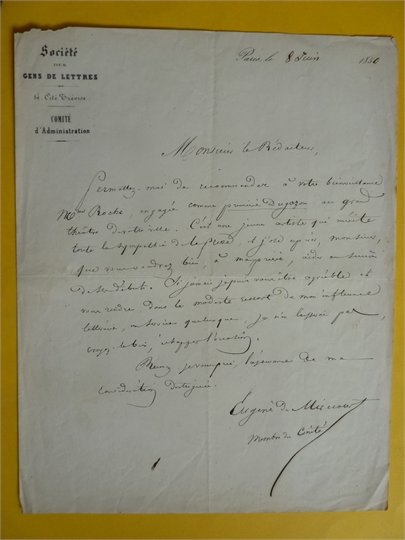 Société
DES
GENS DE LETTRES
14 Cité Trévise
COMITÉ
d'Administration
Paris, le 8 Juin 1850
Monsieur le Rédacteur,
Permettez-moi de recommander à votre bienveillance
Mme Roche, engagée comme première Dugazon au grand
théâtre de votre ville. C'est une jeune artiste qui mérite
toute la sympathie de la presse, et j'ose espérer, monsieur,
que vous voudrez bien, à ma prière, aider au succès
de ses débuts. Si jamais je puis vous être agréable et
vous rendre, dans le modeste ressort de mon influence
littéraire, un service quelconque, je n'en laisserai pas,
croyez-le bien, échapper l'occasion.
Recevez, je vous prie, l'assurance de ma
considération distinguée.
Eugène de Mirecourt
Membre du Comité